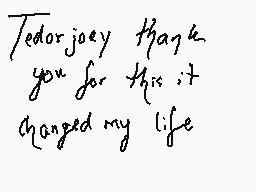 Tedorjoey thank
you for this it
changed my life